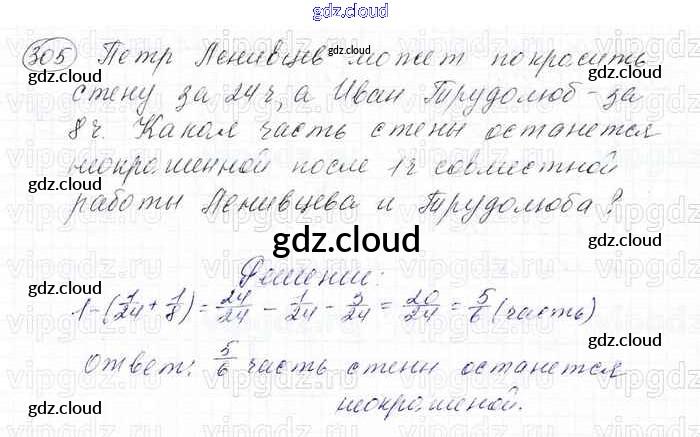 gdz.cloud
305 Петр Ленивцев может покрасить
gdz.cloud
стену за 24 ч, а Иван Трудолюб - за
8 ч. Какая часть стены останется
неокрашенной после 1 ч совместной
работы Ленивцева и Трудолюба?
gdz.cloud
Решение:
1 - (1/24 + 1/8) = 24/24 - 1/24 - 3/24 = 20/24 = 5/6 (часть)
Ответ: 5/6 часть стены останется
неокрашеной.
gdz.cloud
gdz.cloud
gdz.cloud
gdz.cloud
gdz.cloud
gdz.cloud
gdz.cloud